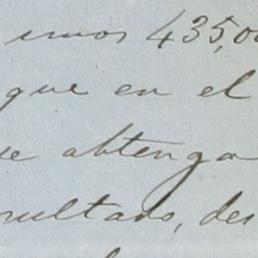 unos 435,00
que en el
se obtenga
resultado, des